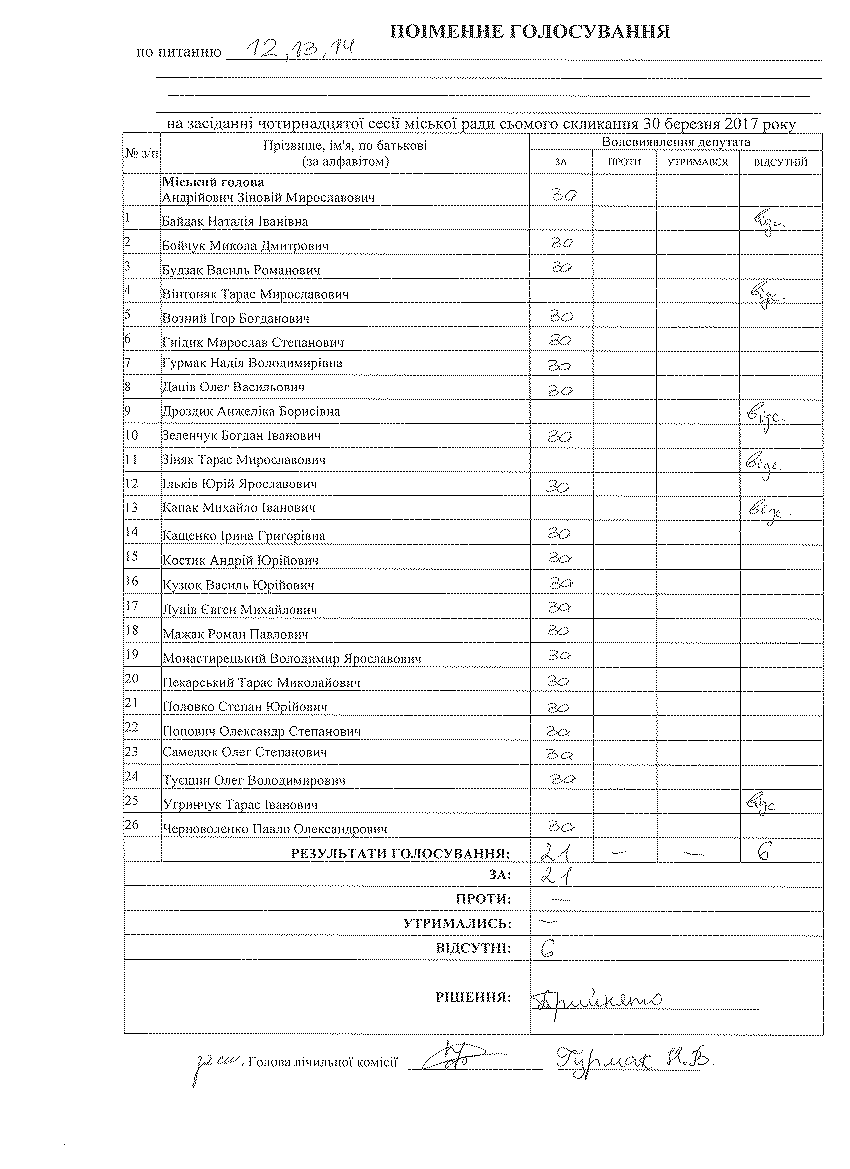 ПОІМЕННЕ ГОЛОСУВАННЯ
по питанню 12, 13, 14
на засіданні чотирнадцятої сесії міської ради сьомого скликання 30 березня 2017 року
№ з/п Прізвище, ім'я, по батькові (за алфавітом) Волевиявлення депутата
ЗА ПРОТИ УТРИМАВСЯ ВІДСУТНІЙ
Міський голова
Андрійович Зіновій Мирославович за
1 Байдак Наталія Іванівна відс.
2 Бойчук Микола Дмитрович за
3 Будзак Василь Романович за
4 Вінтоняк Тарас Мирославович відс.
5 Возний Ігор Богданович за
6 Гнідик Мирослав Степанович за
7 Гурмак Надія Володимирівна за
8 Даців Олег Васильович за
9 Дроздик Анжеліка Борисівна відс.
10 Зеленчук Богдан Іванович за
11 Зіняк Тарас Мирославович відс.
12 Ільків Юрій Ярославович за
13 Капак Михайло Іванович відс.
14 Кащенко Ірина Григорівна за
15 Костик Андрій Юрійович за
16 Кузюк Василь Юрійович за
17 Луців Євген Михайлович за
18 Мажак Роман Павлович за
19 Монастирецький Володимир Ярославович за
20 Пекарський Тарас Миколайович за
21 Половко Степан Юрійович за
22 Попович Олександр Степанович за
23 Самедюк Олег Степанович за
24 Туєшин Олег Володимирович за
25 Угринчук Тарас Іванович відс
26 Черноволенко Павло Олександрович за
РЕЗУЛЬТАТИ ГОЛОСУВАННЯ: 21 – – 6
ЗА: 21
ПРОТИ: –
УТРИМАЛИСЬ: –
ВІДСУТНІ: 6
РІШЕННЯ: Прийнято
заст. Голова лічильної комісії Гурмак Н.В.